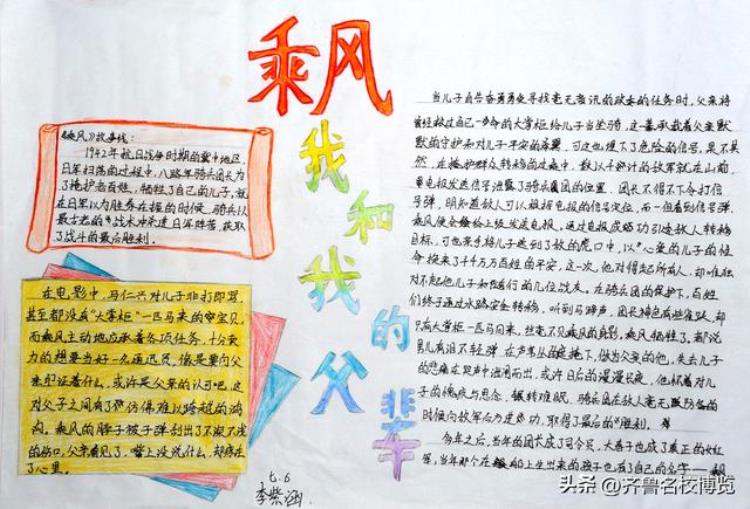 乘风
我
和
我
的
父
辈
《乘风》故事线：
1942年抗日战争时期的冀中地区，
日军扫荡的过程中，八路军骑兵团长为
了掩护老百姓，牺牲了自己的儿子，就
在日军以为胜券在握的时候，骑兵以
最古老的战术冲来进日军阵营，获取
了战斗的最后胜利。
在电影中，马仁兴对儿子非打即骂，
甚至都没有"大掌柜"一匹马来的宝贝，
而乘风主动地应承着各项任务，十分卖
力的想要当好一名通迅员，像是要向父
亲印证着什么，或许是父亲的认可吧，这
对父子之间有了仿佛难以跨越的鸿
沟，乘风的脖子被子弹刮出了不深不浅
的伤口，父亲看见了，嘴上没说什么，却疼在
了心里。
七.6
李紫涵
当儿子自告奋勇要去寻找毫无音讯的政委的任务时，父亲将
曾经救过自己一命的大掌柜给儿子当坐骑，这一幕承载着父亲默
默的守护和对儿子平安的希冀，可这也埋下了危险的信号，果不其
然，在掩护群众转移的过程中，数以千计的敌军就在山前，
电报发送信号泄露了骑兵团的位置，团长不得不下令打信
号弹，明知道敌人可以根据电报的信号定位，而一但看到信号弹，
乘风便会给上级发送电报，通过电报成功引诱敌人转移
目标，可也亲手将儿子送到了敌的虎口中，以"心爱的儿子的性
命换来了44万万百姓的平安，这一次，他对得起所有人，却唯独
对不起他儿子和随行的几位战友，在骑兵团的保护下，百姓
们终于通过水路安全转移，听到马蹄声，团长满色有些雀跃，却
只有大掌柜一匹马回来，丝毫不见乘风的身影，乘风牺牲了，都说
男儿有泪不轻弹，在芦苇丛的遮掩下，做为父亲的他，失去儿子
的悲痛在哭声中泄闸而出，或许日后的漫漫长夜，他怀着对儿
子的愧疚与思念，辗转难眠，骑兵团在敌人毫无防备的
时候向敌军后方进攻，取得了最后的胜利。
多年之后，当年的团长成了司令员，大春子也成了真正的女红
军，当年那个在船上生出来的孩子也有了自己的名字——
头条 @齐鲁名校博览